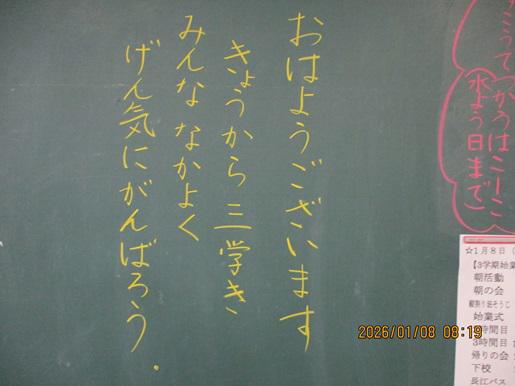 おはようございます
きょうから三学き
みんななかよく
げん気にがんばろう.
水よう日まで
☆1月8日(
【3学期始業
朝活動
朝の会
始業式
時間目
3時間目
帰りの会
下校
長江バス
2026/01/08 08:19